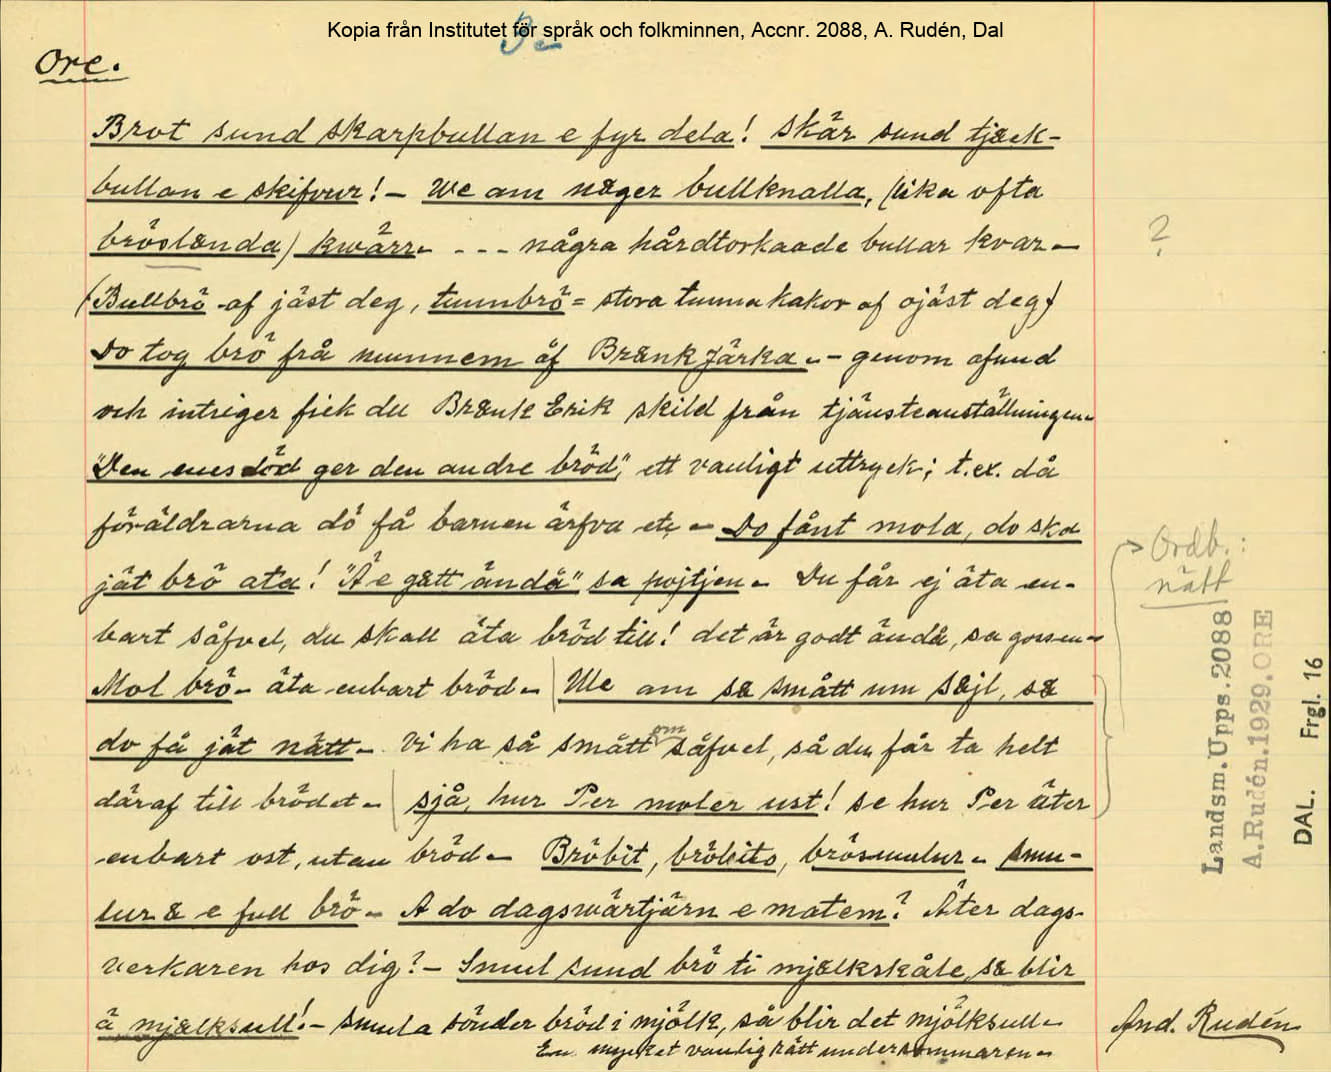 Kopia från Institutet för språk och folkminnen, Accnr. 2088, A. Rudén, Dal
Ore.
Brot sund skarpbullan e fyr dela! Skär sund tjæck-
bullan e skifvur! – We am någer bullknalla, (lika ofta
bröslænda) kwärr. - - - några hårdtorkaade bullar kvar –
(Bullbrö af jäst deg, tunnbrö = stora tunna kakor af ojäst deg)
Do tog brö frå munnem åf Brænk Järka. – genom afund
och intriger fick du Brænk Erik skild från tjänsteanställningen.
"Den enes död ger den andre bröd", ett vanligt uttryck; t.ex. då
föräldrarna dö få barnen ärfva etc. – Do fånt mola, do ska
jät brö ata! "Ä e gætt ändå" sa pojtjen. Du får ej äta en-
bart såfvel, du skall äta bröd till! det är godt ändå, sa gossen –
Mol brö – äta enbart bröd – We am sæ smått um sæjl, sæ
do få jät nätt – Vi ha så smått om såfvel, så du får ta helt
däraf till brödet – sjå, hur Per moler ust! se hur Per äter
enbart ost, utan bröd – Bröbit, bröbito, brösmulur. Smu-
lur æ e full brö – A do dagswärtjärn e matem? Äter dags-
verkaren hos dig? – Smul sund brö ti mjælkskåle, sæ blir
ä mjælksull! – smula sönder bröd i mjölk, så blir det mjölksull –
En mycket vanlig rätt under sommaren –
?
Ordb.:
nätt
Landsm. Upps. 2088
A. Rudén. 1929. ORE
DAL. Frgl. 16
And. Rudén